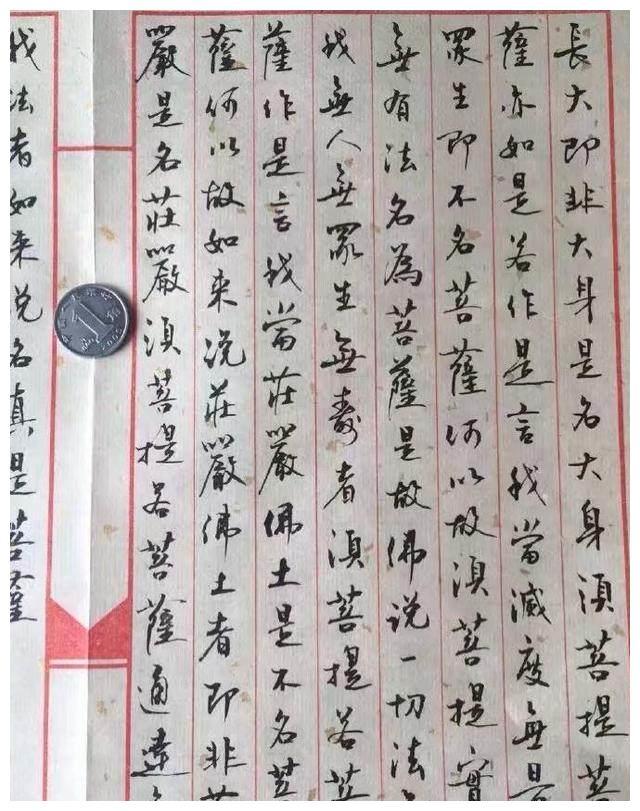 長大即非大身是名大身須菩提菩
薩亦如是若作是言我當滅度無量
眾生即不名菩薩何以故須菩提實
無有法名為菩薩是故佛說一切法
我無人無眾生無壽者須菩提若菩
薩作是言我當莊嚴佛土是不名菩
薩何以故如来说莊嚴佛土者即非
嚴是名莊嚴須菩提若菩薩通達
我法者如来说名真是菩薩
1